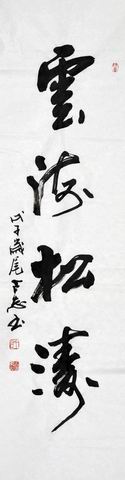 雲海松濤
戊子歲尾子善書